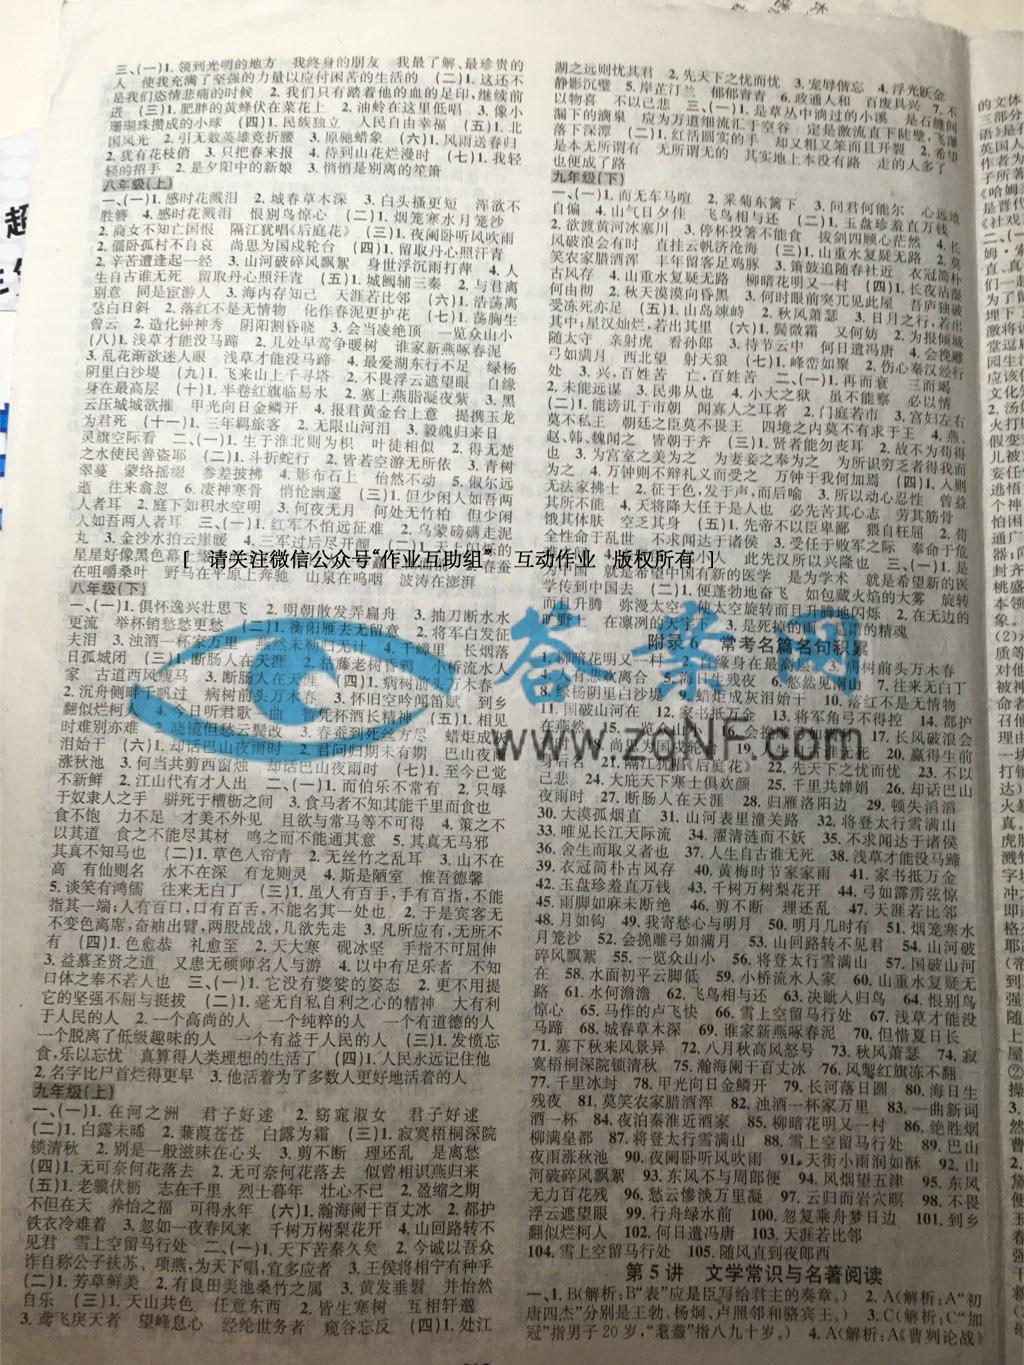 三、(一)1. 领到光明的地方　我终身的朋友　我最了解、最珍贵的
人　使我充满了坚强的力量以应付困苦的生活的　(二)1. 这还不
是我们恣情悲痛的时候　2. 我们只有踏着他的血的足印,继续前
进　(三)1. 肥胖的黄蜂伏在菜花上　2. 油蛉在这里低唱　3. 像小
珊瑚珠攒成的小球　(四)1. 民族独立　人民自由幸福　(五)1. 北
国风光　2. 引无数英雄竞折腰　3. 原驰蜡象　(六)1. 风雨送春归
2. 犹有花枝俏　3. 只把春来报　4. 待到山花烂漫时　(七)1. 我轻
轻的招手　2. 是夕阳中的新娘　3. 悄悄是别离的笙箫
八年级(上)
一、(一)1. 感时花溅泪　2. 城春草木深　3. 白头搔更短　浑欲不
胜簪　4. 感时花溅泪　恨别鸟惊心　(二)1. 烟笼寒水月笼沙
2. 商女不知亡国恨　隔江犹唱《后庭花》　(三)1. 夜阑卧听风吹雨
2. 僵卧孤村不自哀　尚思为国戍轮台　(四)1. 留取丹心照汗青
2. 辛苦遭逢起一经　3. 山河破碎风飘絮　身世浮沉雨打萍　4. 人
生自古谁无死　留取丹心照汗青　(五)1. 城阙辅三秦　2. 与君离
别意　同是宦游人　3. 海内存知己　天涯若比邻　(六)1. 浩荡离
愁白日斜　2. 落红不是无情物　化作春泥更护花　(七)1. 荡胸生
曾云　2. 造化钟神秀　阴阳割昏晓　3. 会当凌绝顶　一览众山小
(八)1. 浅草才能没马蹄　2. 几处早莺争暖树　谁家新燕啄春泥
3. 乱花渐欲迷人眼　浅草才能没马蹄　4. 最爱湖东行不足　绿杨
阴里白沙堤　(九)1. 飞来山上千寻塔　2. 不畏浮云遮望眼　自缘
身在最高层　(十)1. 半卷红旗临易水　2. 塞上燕脂凝夜紫　3. 黑
云压城城欲摧　甲光向日金鳞开　4. 报君黄金台上意　提携玉龙
为君死　(十一)1. 三年羁旅客　2. 无限山河泪　3. 毅魄归来日
灵旗空际看　二、(一)1. 生于淮北则为枳　叶徒相似　2. 得无楚
之水使民善盗耶　(二)1. 斗折蛇行　2. 皆若空游无所依　3. 青树
翠蔓　蒙络摇缀　参差披拂　4. 影布石上　佁然不动　5. 俶尔远
逝　往来翕忽　6. 凄神寒骨　悄怆幽邃　(三)1. 但少闲人如吾两
人者耳　2. 庭下如积水空明　3. 何夜无月　何处无竹柏　但少闲
人如吾两人者耳　三、(一)1. 红军不怕远征难　2. 乌蒙磅礴走泥
丸　3. 金沙水拍云崖暖　4. 三军过后尽开颜
星星好像黑色幕
在咀嚼桑叶　野马在平原上奔驰　山泉在呜咽　波涛在澎湃
八年级(下)
一、(一)1. 俱怀逸兴壮思飞　2. 明朝散发弄扁舟　3. 抽刀断水水
更流　举杯销愁愁更愁　(二)1. 衡阳雁去无留意　2. 将军白发征
夫泪　3. 浊酒一杯家万里　燕然未勒归无计　4. 千嶂里　长烟落
日孤城闭　(三)1. 断肠人在天涯　2. 枯藤老树昏鸦　小桥流水人
家　古道西风瘦马　3. 断肠人在天涯　(四)1. 病树前头万木春
2. 沉舟侧畔千帆过　病树前头万木春　3. 怀旧空吟闻笛赋　到乡
翻似烂柯人　4. 今日听君歌一曲　暂凭杯酒长精神　(五)1. 相见
时难别亦难　2. 晓镜但愁云鬓改　3. 春蚕到死丝方尽　蜡炬成灰
泪始干　(六)1. 却话巴山夜雨时　2. 君问归期未有期　巴山夜雨
涨秋池　3. 何当共剪西窗烛　却话巴山夜雨时　(七)1. 至今已觉
不新鲜　2. 江山代有才人出　二、(一)1. 而伯乐不常有　2. 只辱
于奴隶人之手　骈死于槽枥之间　3. 食马者不知其能千里而食也
食不饱　力不足　才美不外见　且欲与常马等不可得　4. 策之不
以其道　食之不能尽其材　鸣之而不能通其意　5. 其真无马邪
其真不知马也　(二)1. 草色入帘青　2. 无丝竹之乱耳　3. 山不在
高　有仙则名　水不在深　有龙则灵　4. 斯是陋室　惟吾德馨
5. 谈笑有鸿儒　往来无白丁　(三)1. 虽人有百手,手有百指,不能
指其一端;人有百口,口有百舌,不能名其一处也　2. 于是宾客无
不变色离席,奋袖出臂,两股战战,几欲先走　3. 凡所应有,无所不
有　(四)1. 色愈恭　礼愈至　2. 天大寒　砚冰坚　手指不可屈伸
3. 益慕圣贤之道　又患无硕师名人与游　4. 以中有足乐者　不知
口体之奉不若人也　三、(一)1. 它没有婆娑的姿态　2. 更不用提
它的坚强不屈与挺拔　(二)1. 毫无自私自利之心的精神　大有利
于人民的人　2. 一个高尚的人　一个纯粹的人　一个有道德的人
一个脱离了低级趣味的人　一个有益于人民的人　(三)1. 发愤忘
食,乐以忘忧　真算得人类理想的生活了　(四)1. 人民永远记住他
2. 名字比尸首烂得更早　3. 他活着为了多数人更好地活着的人
九年级(上)
一、(一)1. 在河之洲　君子好逑　2. 窈窕淑女　君子好逑
(二)1. 白露未晞　2. 蒹葭苍苍　白露为霜　(三)1. 寂寞梧桐深院
锁清秋　2. 别是一般滋味在心头　3. 剪不断　理还乱　是离愁
(四)1. 无可奈何花落去　2. 无可奈何花落去　似曾相识燕归来
(五)1. 老骥伏枥　志在千里　烈士暮年　壮心不已　2. 盈缩之期
不但在天　养怡之福　可得永年　(六)1. 瀚海阑干百丈冰　2. 都护
铁衣冷难着　3. 忽如一夜春风来　千树万树梨花开　4. 山回路转不
见君　雪上空留马行处　二、(一)1. 天下苦秦久矣　2. 今诚以吾众
诈自称公子扶苏、项燕,为天下唱,宜多应者　3. 王侯将相宁有种乎
(二)1. 芳草鲜美　2. 有良田美池桑竹之属　3. 黄发垂髫　并怡然
自乐　(三)1. 天山共色　任意东西　2. 皆生寒树　互相轩邈
3. 鸢飞戾天者　望峰息心　经纶世务者　窥谷忘反　(四)1. 处江
湖之远则忧其君　2. 先天下之忧而忧　3. 宠辱偕忘　4. 浮光跃金
静影沉璧　5. 岸芷汀兰　郁郁青青　6. 政通人和　百废具兴　7. 不
以物喜　不以己悲　三、(一)1. 是草丛中淌过的小溪　是石缝间
漏下的滴泉　应为万道细流汇于空谷　定是激流直下陡壁,飞瀑
落下深潭　(二)1. 红活圆实的手　却又粗又笨而且开裂　2. 希望
是本无所谓有　无所谓无的　其实地上本没有路　走的人多了
也便成了路
九年级(下)
一、(一)1. 而无车马喧　2. 采菊东篱下　3. 问君何能尔　心远地
自偏　4. 山气日夕佳　飞鸟相与还　(二)1. 玉盘珍羞直万钱
2. 欲渡黄河冰塞川　3. 停杯投箸不能食　拔剑四顾心茫然　4. 长
风破浪会有时　直挂云帆济沧海　(三)1. 山重水复疑无路　2. 莫
笑农家腊酒浑　丰年留客足鸡豚　3. 箫鼓追随春社近　衣冠简朴
古风存　4. 山重水复疑无路　柳暗花明又一村　(四)1. 长夜沾湿
何由彻　2. 秋天漠漠向昏黑　3. 何时眼前突兀见此屋　吾庐独破
受冻死亦足　(五)1. 山岛竦峙　2. 秋风萧瑟　3. 日月之行,若出
其中;星汉灿烂,若出其里　(六)1. 鬓微霜　又何妨　2. 为报倾城
随太守　亲射虎　看孙郎　3. 持节云中　何日遣冯唐　4. 会挽雕
弓如满月　西北望　射天狼　(七)1. 峰峦如聚　2. 伤心秦汉经行
处　3. 兴,百姓苦　亡,百姓苦　二、(一)1. 再而衰　三而竭
2. 未能远谋　3. 民弗从也　4. 小大之狱　虽不能察　必以情
(二)1. 能谤讥于市朝　闻寡人之耳者　2. 门庭若市　3. 宫妇左右
莫不私王　朝廷之臣莫不畏王　四境之内莫不有求于王　4. 燕、
赵、韩、魏闻之　皆朝于齐　(三)1. 贤者能勿丧耳　2. 故不为苟得
也　3. 为宫室之美为之　为妻妾之奉为之　为所识穷乏者得我而
为之　4. 万钟则不辩礼义而受之　万钟于我何加焉　(四)1. 入则
无法家拂士　2. 征于色,发于声,而后喻　3. 所以动心忍性　曾益
其所不能　4. 天将降大任于是人也　必先苦其心志　劳其筋骨
饿其体肤　空乏其身　(五)1. 先帝不以臣卑鄙　猥自枉屈
奉命于危难之间　3. 受任于败军之际
此先汉所以兴隆也　三、(一)1.
中国目前有新的医学　是为学术　就是希望有新的医
学传到中国去　(二)1. 便蓬勃地奋飞　如包藏火焰的大雾　旋转
而且升腾　弥漫太空　使太空旋转而且升腾地闪烁　2. 在无边的
旷野上　在凛冽的天宇下　3. 是死掉的雨　是雨的精魂
附录6　常考名篇名句积累
1. 柳暗花明又一村　2. 自缘身在最高层　3. 病树前头万木春
4. 人有悲欢离合　5. 海日生残夜　6. 悠然见南山　7. 往来无白丁
8. 绿杨阴里白沙堤　9. 蜡炬成灰泪始干　10. 落红不是无情物
11. 国破山河在　12. 家书抵万金　13. 将军角弓不得控　14. 都护
在燕然　15. 一览众山小　17. 长风破浪会
有时　18. 尚思为国戍轮台　20. 赢得生前
身后名　21. 隔江犹唱《后庭花》　22. 先天下之忧而忧　23. 不以
己悲　24. 大庇天下寒士俱欢颜　25. 千里共婵娟　26. 却话巴山
夜雨时　27. 断肠人在天涯　28. 归雁洛阳边　29. 顿失滔滔
30. 大漠孤烟直　31. 山河表里潼关路　32. 将登太行雪满山
33. 唯见长江天际流　34. 濯清涟而不妖　35. 不求闻达于诸侯
36. 舍生而取义者也　37. 人生自古谁无死　38. 浅草才能没马蹄
39. 衣冠简朴古风存　40. 黄梅时节家家雨　41. 家书抵万金
42. 玉盘珍羞直万钱　43. 千树万树梨花开　44. 弓如霹雳弦惊
45. 雨脚如麻未断绝　46. 剪不断　理还乱　47. 天涯若比邻
48. 月如钩　49. 我寄愁心与明月　50. 明月几时有　51. 烟笼寒水
月笼沙　52. 会挽雕弓如满月　53. 山回路转不见君　54. 山河破
碎风飘絮　55. 一览众山小　56. 将登太行雪满山　57. 国破山河
在　58. 水面初平云脚低　59. 小桥流水人家　60. 山重水复疑无
路　61. 水何澹澹　62. 飞鸟相与还　63. 决眦入归鸟　64. 恨别鸟
惊心　65. 马作的卢飞快　66. 雪上空留马行处　67. 浅草才能没
马蹄　68. 城春草木深　69. 谁家新燕啄春泥　70. 但惜夏日长
71. 塞下秋来风景异　72. 八月秋高风怒号　73. 秋风萧瑟　74. 寂
寞梧桐深院锁清秋　75. 瀚海阑干百丈冰　76. 风掣红旗冻不翻
77. 千里冰封　78. 甲光向日金鳞开　79. 长河落日圆　80. 海日生
残夜　81. 莫笑农家腊酒浑　82. 浊酒一杯家万里　83. 一曲新词
酒一杯　84. 夜泊秦淮近酒家　85. 柳暗花明又一村　86. 绝胜烟
柳满皇都　87. 将登太行雪满山　88. 雪上空留马行处　89. 巴山
夜雨涨秋池　90. 夜阑卧听风吹雨　91. 天街小雨润如酥　92. 山
河破碎风飘絮　93. 东风不与周郎便　94. 风烟望五津　95. 东风
无力百花残　96. 愁云惨淡万里凝　97. 云归而岩穴暝　98. 不畏
浮云遮望眼　99. 行舟绿水前　100. 忽复乘舟梦日边　101. 到乡
翻似烂柯人　102. 何日遣冯唐　103. 天涯若比邻
104. 雪上空留马行处　105. 随风直到夜郎西
第5讲　文学常识与名著阅读
一、1. B(解析:B“表”应是臣写给君主的奏章。)　2. A(解析:A“初
唐四杰”分别是王勃、杨炯、卢照邻和骆宾王。)　3. C(解析:C“加
冠”指男子20岁,“耄耋”指八九十岁。)　4. A(解析:A《曹刿论战》
[　请关注微信公众号“作业互助组”　互动作业　版权所有　]
答案网
www.zqNF.com